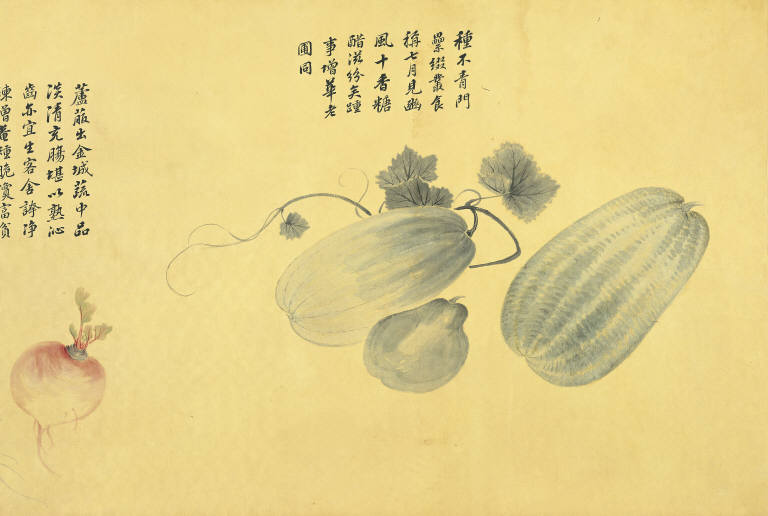 種不青門
纍綴叢食
稱七月見豳
風十香糖
醋滋紛矣踵
事增華老
圃同
蘆菔出金城蔬中品
淡清充腸堪以熟沁
齒亦宜生客舍誇净
陳曾